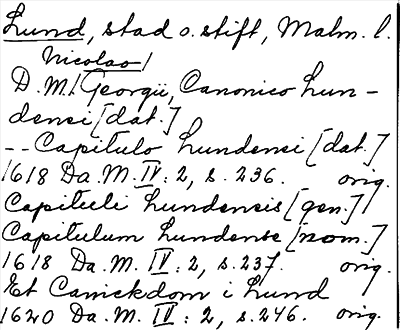 Lund, stad o. stift, Malm. l.
Nicolao/
D. M./Georgii, Canonico Lun-
densi [dat.]
-- Capitulo Lundensi [dat.]
1618 Da. M. IV: 2, s. 236. orig.
Capituli Lundensis [gen.]
Capitulum Lundense [nom.]
1618 Da. M. IV: 2, s. 237. orig.
Et Canickdom i Lund
1620 Da. M. IV: 2, s. 246. orig.